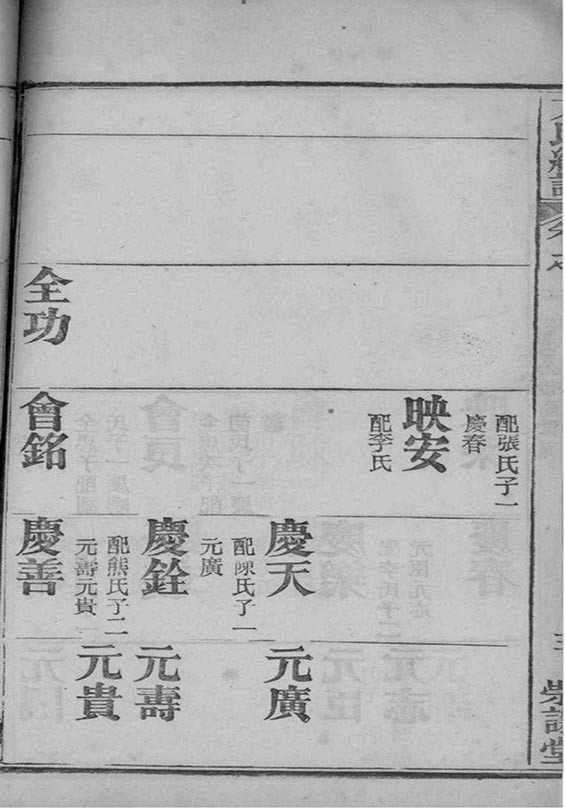 配張氏子一
慶春
映安
配李氏
慶天
元廣
配陳氏子一
元廣
慶銓
元壽
配熊氏子二
元壽元貴
元貴
全功
會銘
慶善